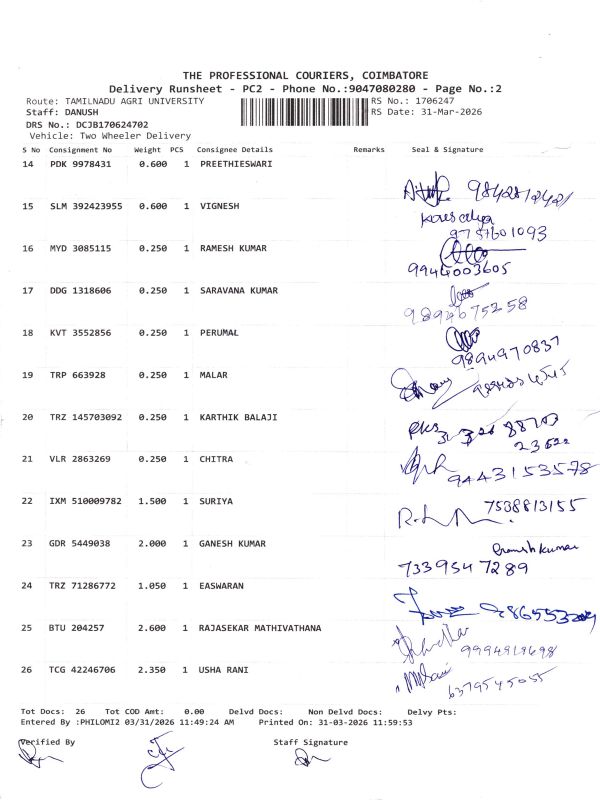 THE PROFESSIONAL COURIERS, COIMBATORE
Delivery Runsheet - PC2 - Phone No.:9047080280 - Page No.:2
Route: TAMILNADU AGRI UNIVERSITY RS No.: 1706247
Staff: DANUSH RS Date: 31-Mar-2026
DRS No.: DCJB170624702
Vehicle: Two Wheeler Delivery
S No Consignment No Weight PCS Consignee Details Remarks Seal & Signature
14 PDK 9978431 0.600 1 PREETHIESWARI
15 SLM 392423955 0.600 1 VIGNESH
9787601093
16 MYD 3085115 0.250 1 RAMESH KUMAR
9944003605
17 DDG 1318606 0.250 1 SARAVANA KUMAR
9894675258
18 KVT 3552856 0.250 1 PERUMAL
9894970837
19 TRP 663928 0.250 1 MALAR
20 TRZ 145703092 0.250 1 KARTHIK BALAJI
21 VLR 2863269 0.250 1 CHITRA
9443153578
22 IXM 510009782 1.500 1 SURIYA
7538813155
23 GDR 5449038 2.000 1 GANESH KUMAR
7339547289
24 TRZ 71286772 1.050 1 EASWARAN
25 BTU 204257 2.600 1 RAJASEKAR MATHIVATHANA
26 TCG 42246706 2.350 1 USHA RANI
6379545055
Tot Docs: 26 Tot COD Amt: 0.00 Delvd Docs: Non Delvd Docs: Delvy Pts:
Entered By :PHILOMI2 03/31/2026 11:49:24 AM Printed On: 31-03-2026 11:59:53
Verified By Staff Signature